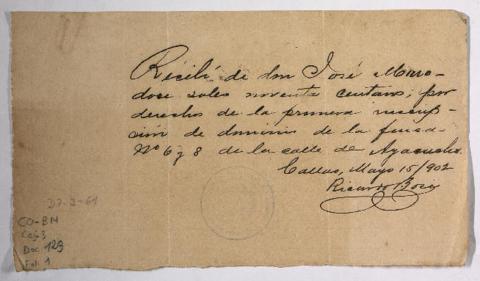 Recibí de don José Muro
doce soles noventa centavos, por
derecho de la primera inscrip-
ción de dominio de la finca
Nº 6 y 8 de la calle de Ayacucho.
Callao, Mayo 15/902
Ricardo
D7-2-61
CO-BM
Caj 3
Doc 123
Fol: 1